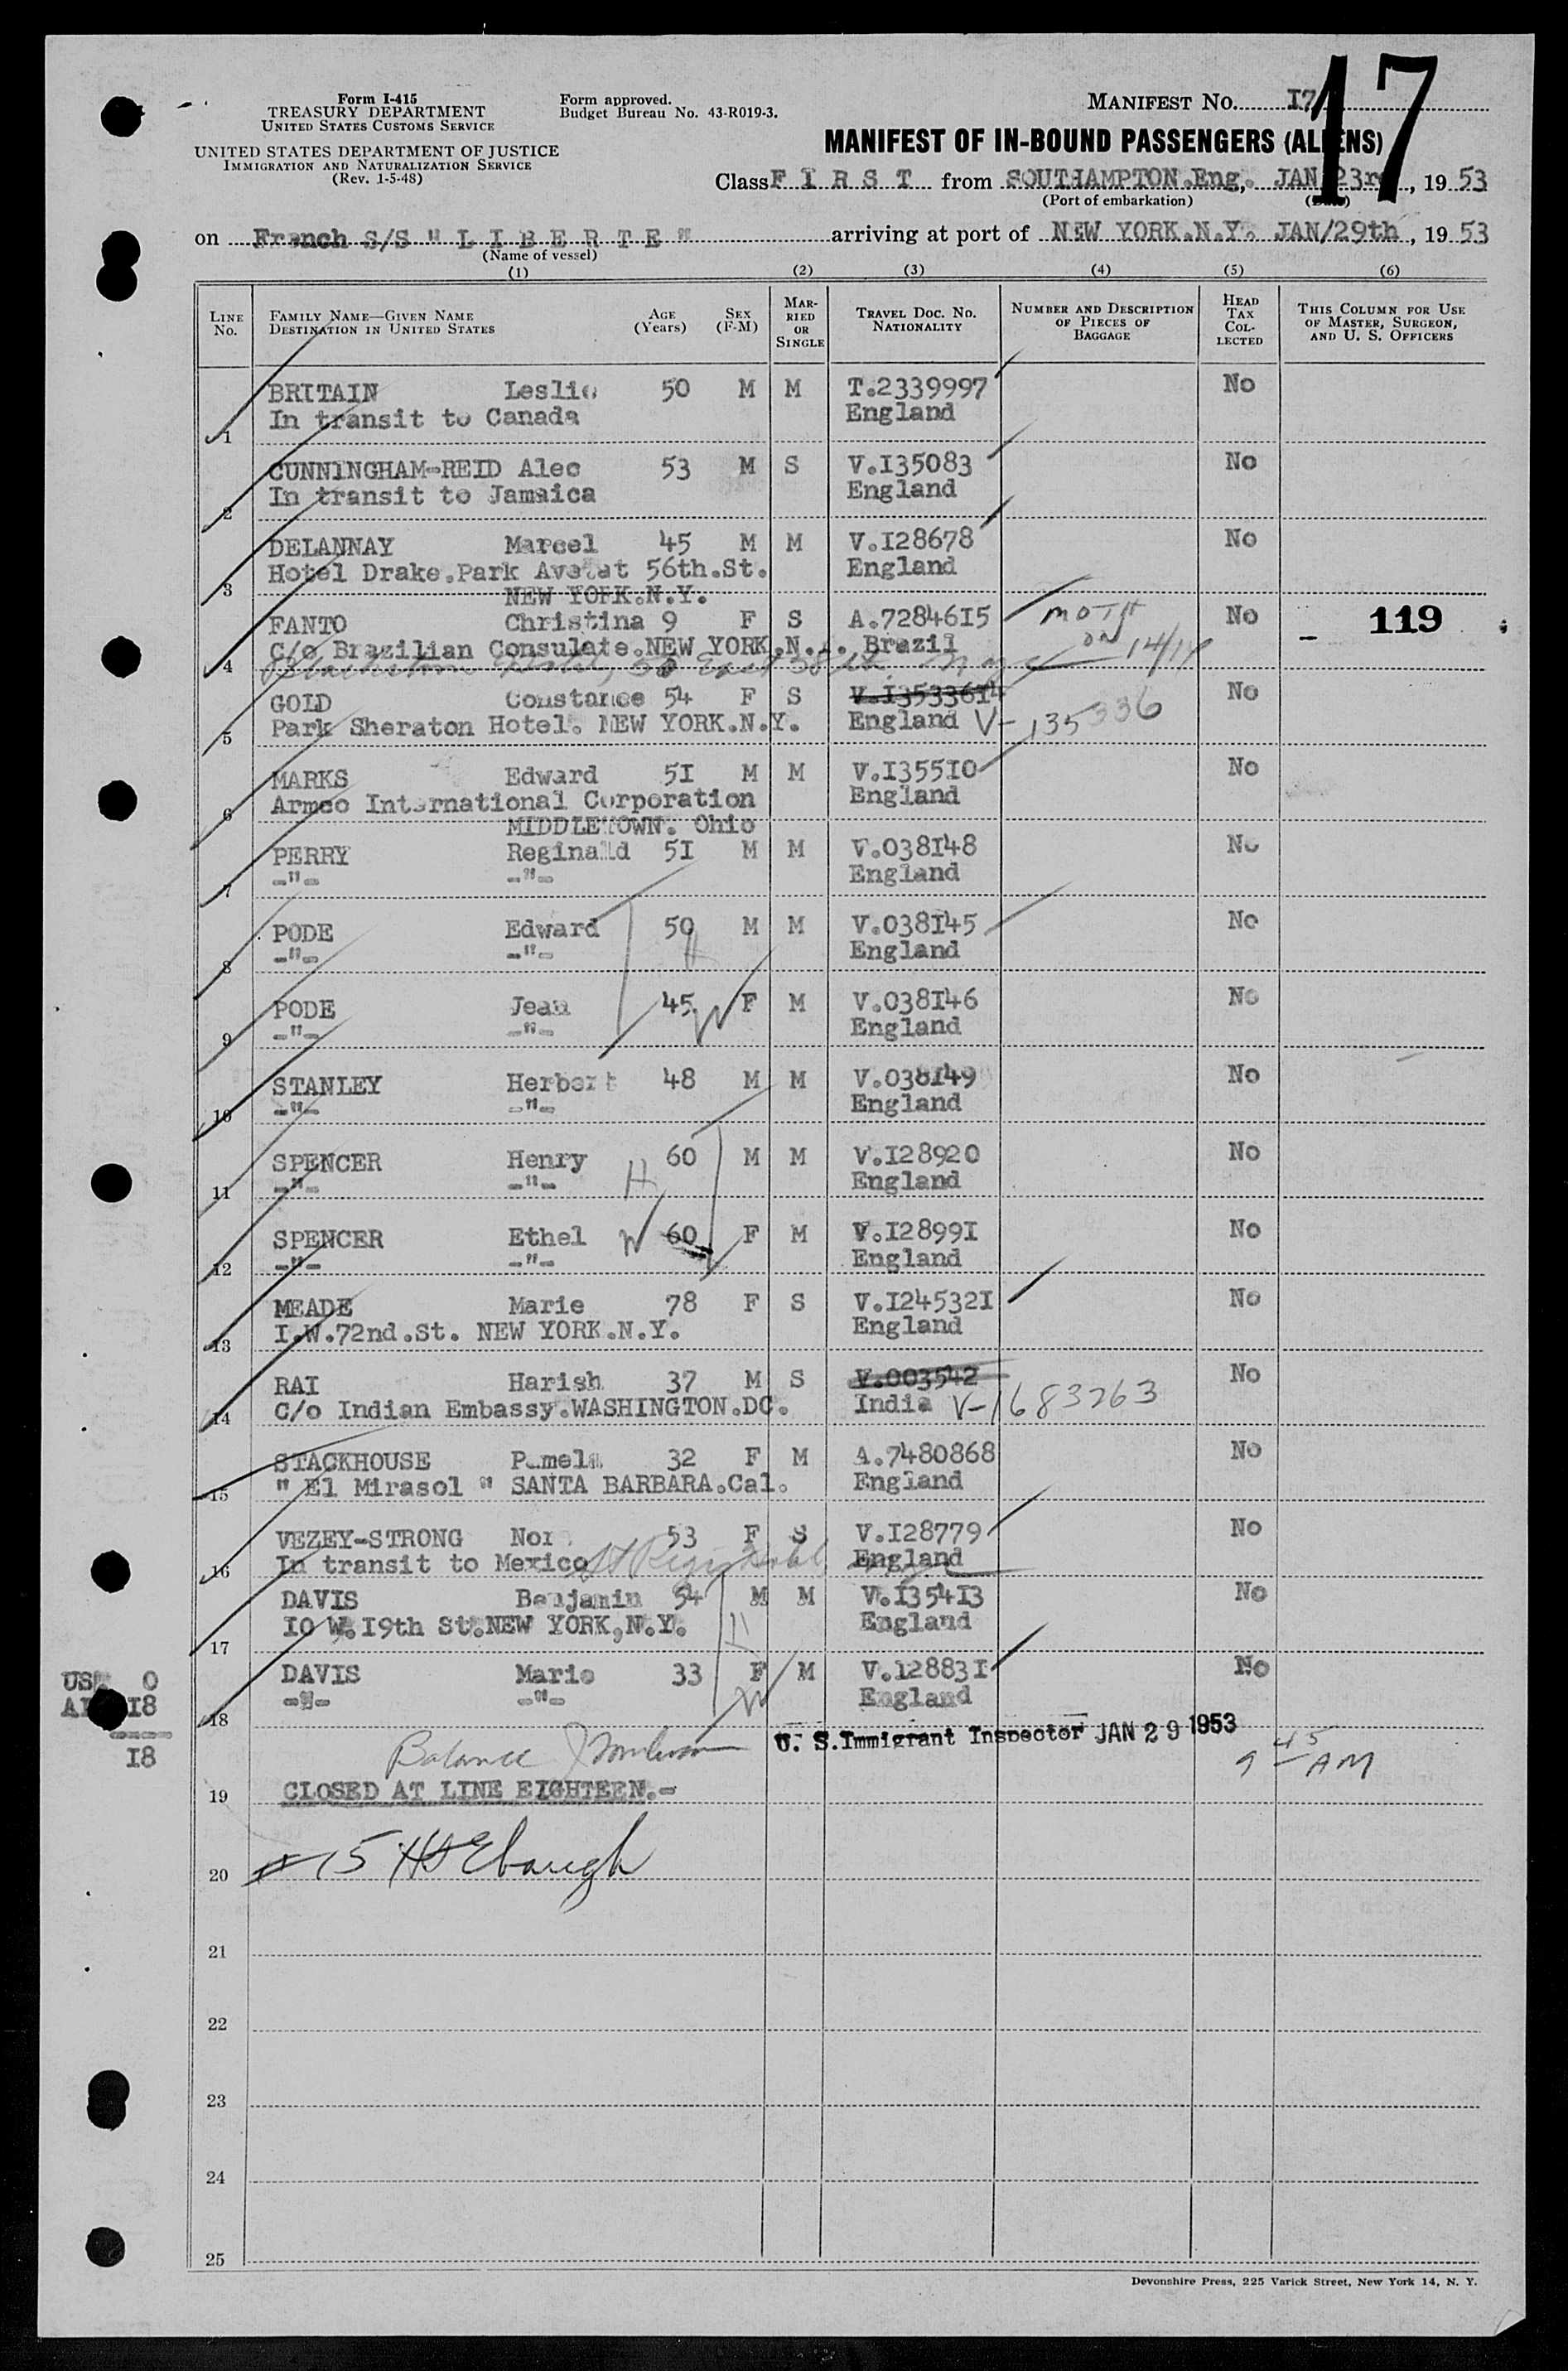 Form I-415
TREASURY DEPARTMENT
UNITED STATES CUSTOMS SERVICE
UNITED STATES DEPARTMENT OF JUSTICE
IMMIGRATION AND NATURALIZATION SERVICE
(Rev. 1-5-48)
Form approved.
Budget Bureau No. 43-R019-3.
MANIFEST NO. I7
17
MANIFEST OF IN-BOUND PASSENGERS (ALIENS)
Class F I R S T from SOUTHAMPTON.Eng. JAN 23rd, 19 53
(Port of embarkation) (Date)
on French S/S " L I B E R T E " arriving at port of NEW YORK.N.Y. JAN/29th, 19 53
(Name of vessel)
(1) (2) (3) (4) (5) (6)
LINE No. FAMILY NAME—GIVEN NAME DESTINATION IN UNITED STATES AGE (Years) SEX (F-M) MARRIED OR SINGLE TRAVEL DOC. NO. NATIONALITY NUMBER AND DESCRIPTION OF PIECES OF BAGGAGE HEAD TAX COLLECTED THIS COLUMN FOR USE OF MASTER, SURGEON, AND U. S. OFFICERS
BRITAIN Leslie 50 M M T.2339997 No
1 In transit to Canada England
CUNNINGHAM-REID Alec 53 M S V.I35083 No
2 In transit to Jamaica England
DELANNAY Marcel 45 M M V.I28678 No
3 Hotel Drake.Park Ave.at 56th.St. England
NEW YORK.N.Y.
FANTO Christina 9 F S A.7284615 No - 119
4 C/o Brazilian Consulate.NEW YORK.N.Y. Brazil
GOLD Constance 54 F S V.I3533614 No
5 Park Sheraton Hotel. NEW YORK.N.Y. England V-135336
MARKS Edward 5I M M V.I355I0 No
6 Armco International Corporation England
MIDDLETOWN. Ohio
PERRY Reginald 5I M M V.038I48 No
7 -"- -"- England
PODE Edward 50 M M V.038I45 No
8 -"- -"- England
H
PODE Jean 45 F M V.038I46 No
9 -"- -"- W England
STANLEY Herbert 48 M M V.038I49 No
10 -"- -"- England
SPENCER Henry 60 M M V.I28920 No
11 -"- -"- H England
SPENCER Ethel W 60 F M V.I2899I No
12 -"- -"- England
MEADE Marie 78 F S V.I24532I No
13 I.W.72nd.St. NEW YORK.N.Y. England
RAI Harish 37 M S V.003542 No
14 C/o Indian Embassy.WASHINGTON.DC. India V-1683263
STACKHOUSE Pamela 32 F M A.7480868 No
15 " El Mirasol " SANTA BARBARA.Cal. England
VEZEY-STRONG 53 F S V.I28779 No
16 In transit to Mexico England
DAVIS Benjamin 54 M M V.I354I3 No
17 I0 W.I9th St.NEW YORK,N.Y. H England
DAVIS Marie 33 F M V.I2883I No
18 -"- -"- W England
US 0
18
18
Balance U. S. Immigrant Inspector JAN 29 1953
9 45 AM
19 CLOSED AT LINE EIGHTEEN.-
20 # 15 HS Ebaugh
21
22
23
24
25
Devonshire Press, 225 Varick Street, New York 14, N. Y.